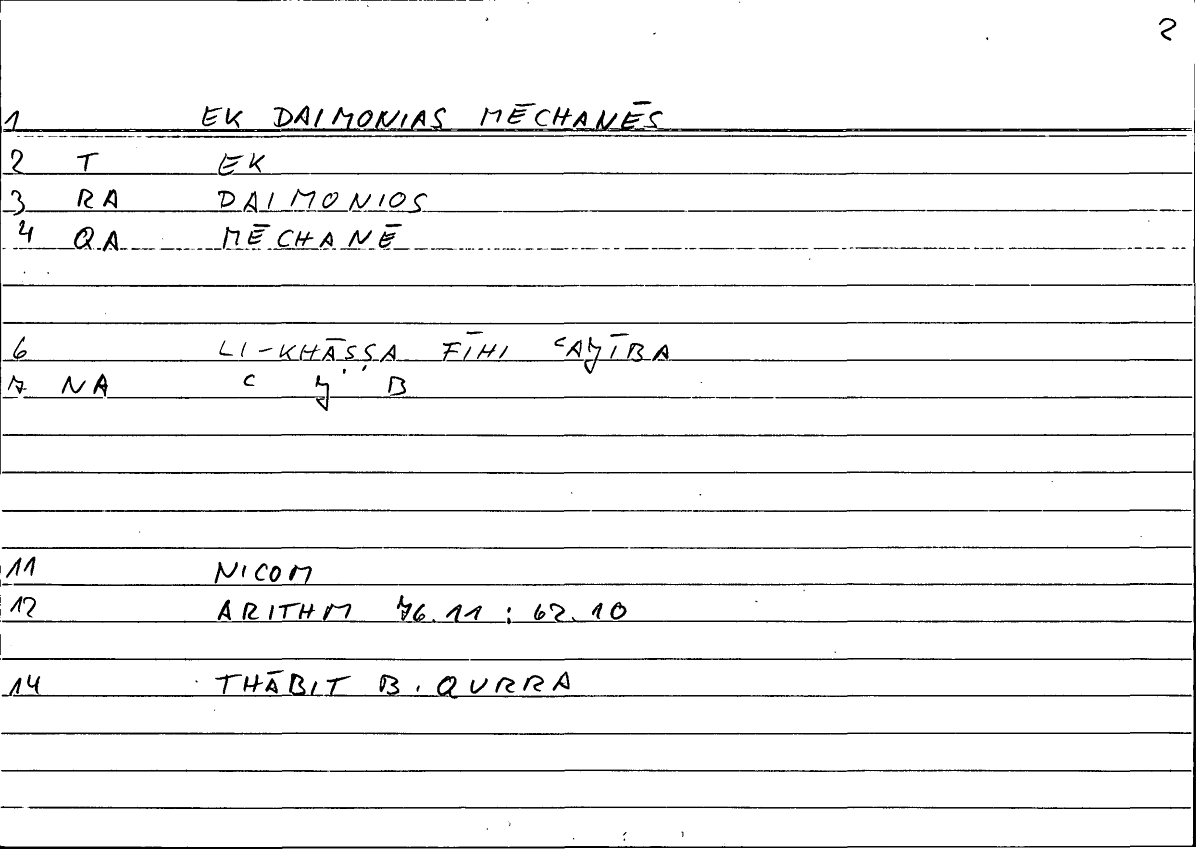 2
1 EK DAIMONIAS MĒCHANĒS
2 T EK
3 RA DAIMONIOS
4 QA MĒCHANĒ
6 LI-KHĀṢṢA FĪHI ʿAJĪBA
7 NA ʿ J B
11 NICOM
12 ARITHM 76.11 : 62.10
14 THĀBIT B. QURRA